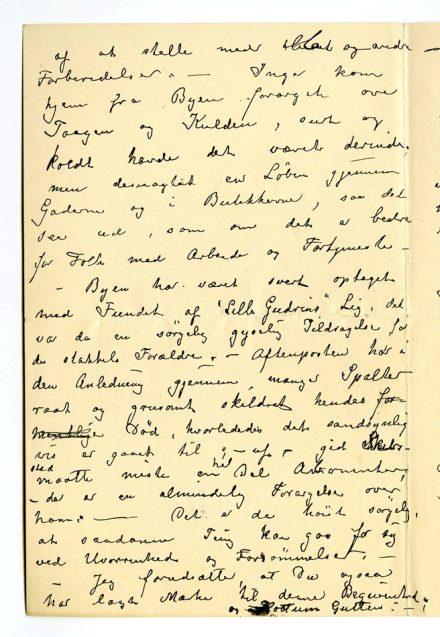 af at stelle med Stuet og andre
Forberedelser. — Inger kom
hjem fra Byen forarget over
Taagen og Kulden, surt og
koldt havde det været derinde,
men desuagtet en Løben gjennem
Gaderne og i Butikkerne, saa det
ser ud, som om det er bedre
for Folk med Arbeide og Fortjeneste —
— Byen har været svert optaget
med Fundet af "Lille Gudruns" Lig, det
var da en sørgelig gyselig Tildragelse for
de stakkels Forældre. — Aftenposten har i
den Anledning gjennem mange Spalter
raat og grusomt skildret hendes for-
Død, hvorledes det sandsynlig
vis er gaaet til; — gid
sted maatte miste en hel Del Abonnenter,
— der er en almindelig Forargelse over
ham. — Det er da høist sørgelig,
at saadanne Ting kan gaa for sig
ved Uvorrenhed og Forsømmelse. —
— Jeg forudsætter, at Du ogsaa
har lagt Mærke til denne Begivenhed
og Gutten. —